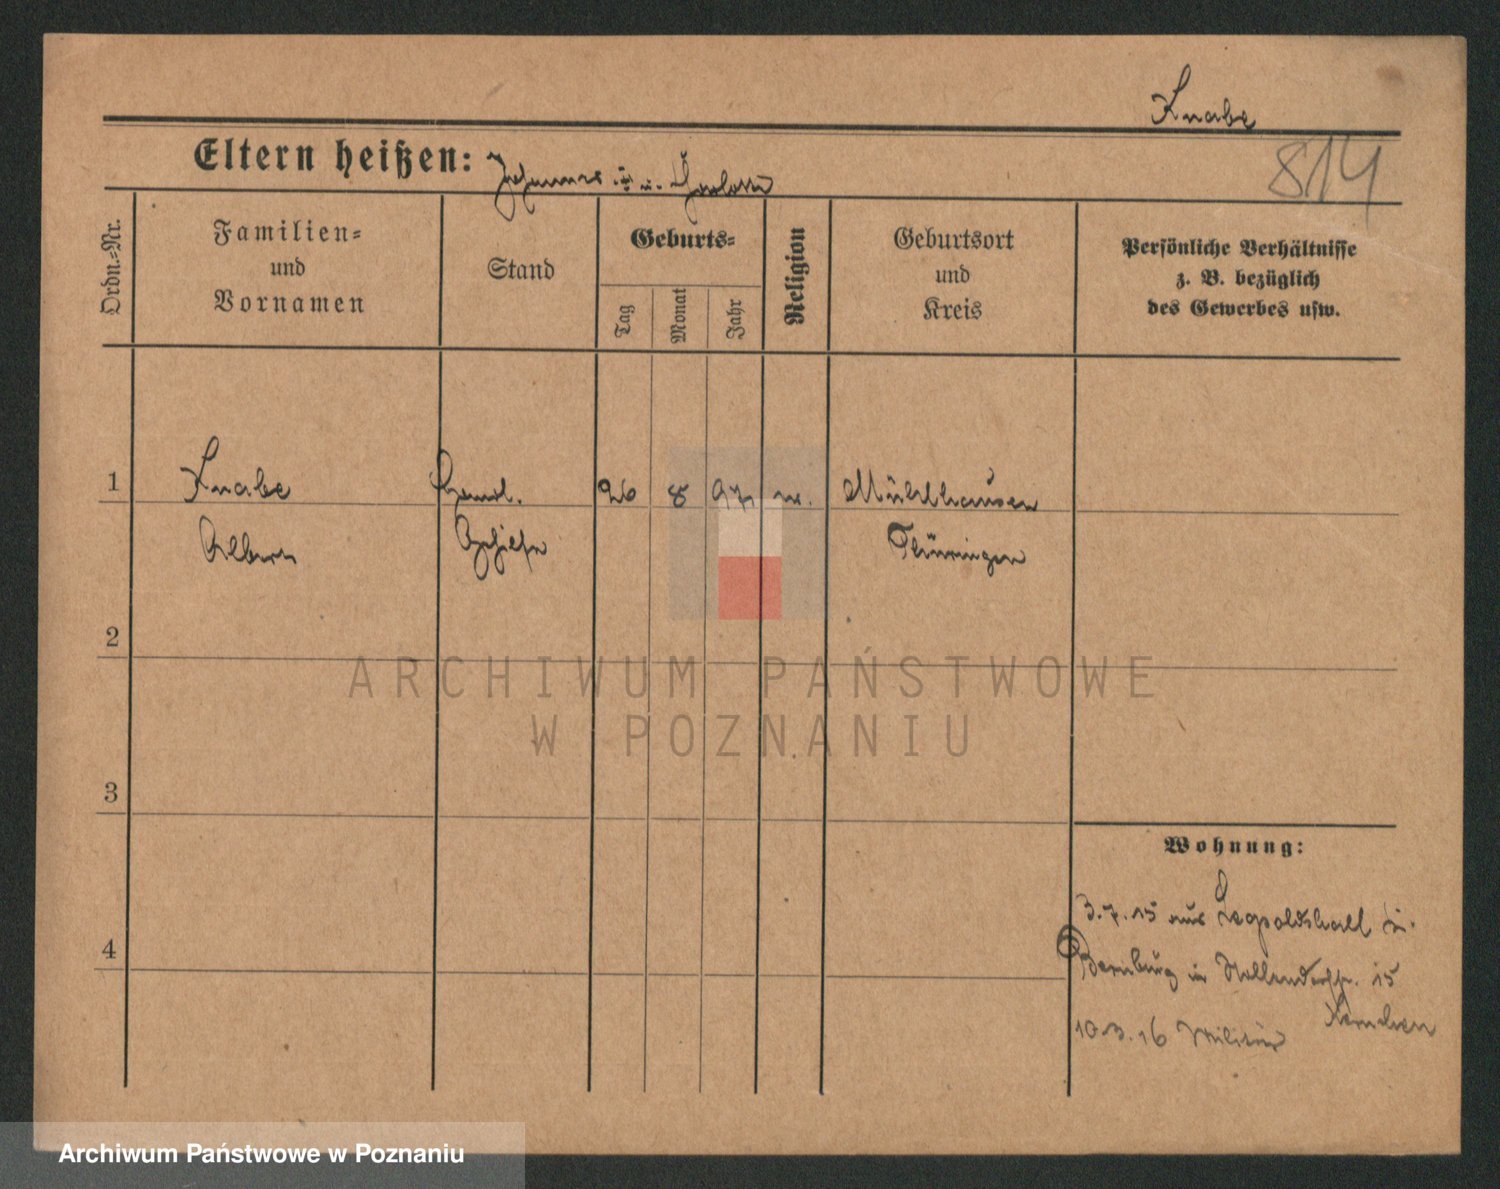 Knabe
814
Eltern heißen: Johannes u.
Ordn.-Nr.
Familien-
und
Vornamen
Stand
Geburts-
Tag
Monat
Jahr
Religion
Geburtsort
und
Kreis
Persönliche Verhältnisse
z. B. bezüglich
des Gewerbes usw.
1
Knabe
Handl.
26 8 97
Mühlhausen
Albert
Gehilfe
Thüringen
2
3
4
Wohnung:
3.7.15 aus Leopoldshall
Bernburg in 15
10.3.16 Militär
ARCHIWUM PAŃSTWOWE
W POZNANIU
Archiwum Państwowe w Poznaniu